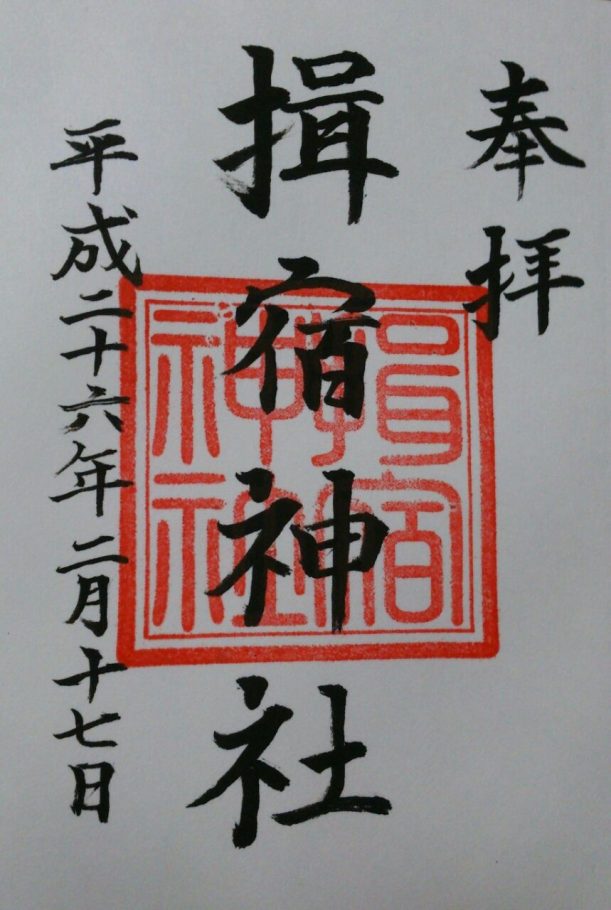 奉拝
揖宿神社
平成二十六年二月十七日
揖宿
神社